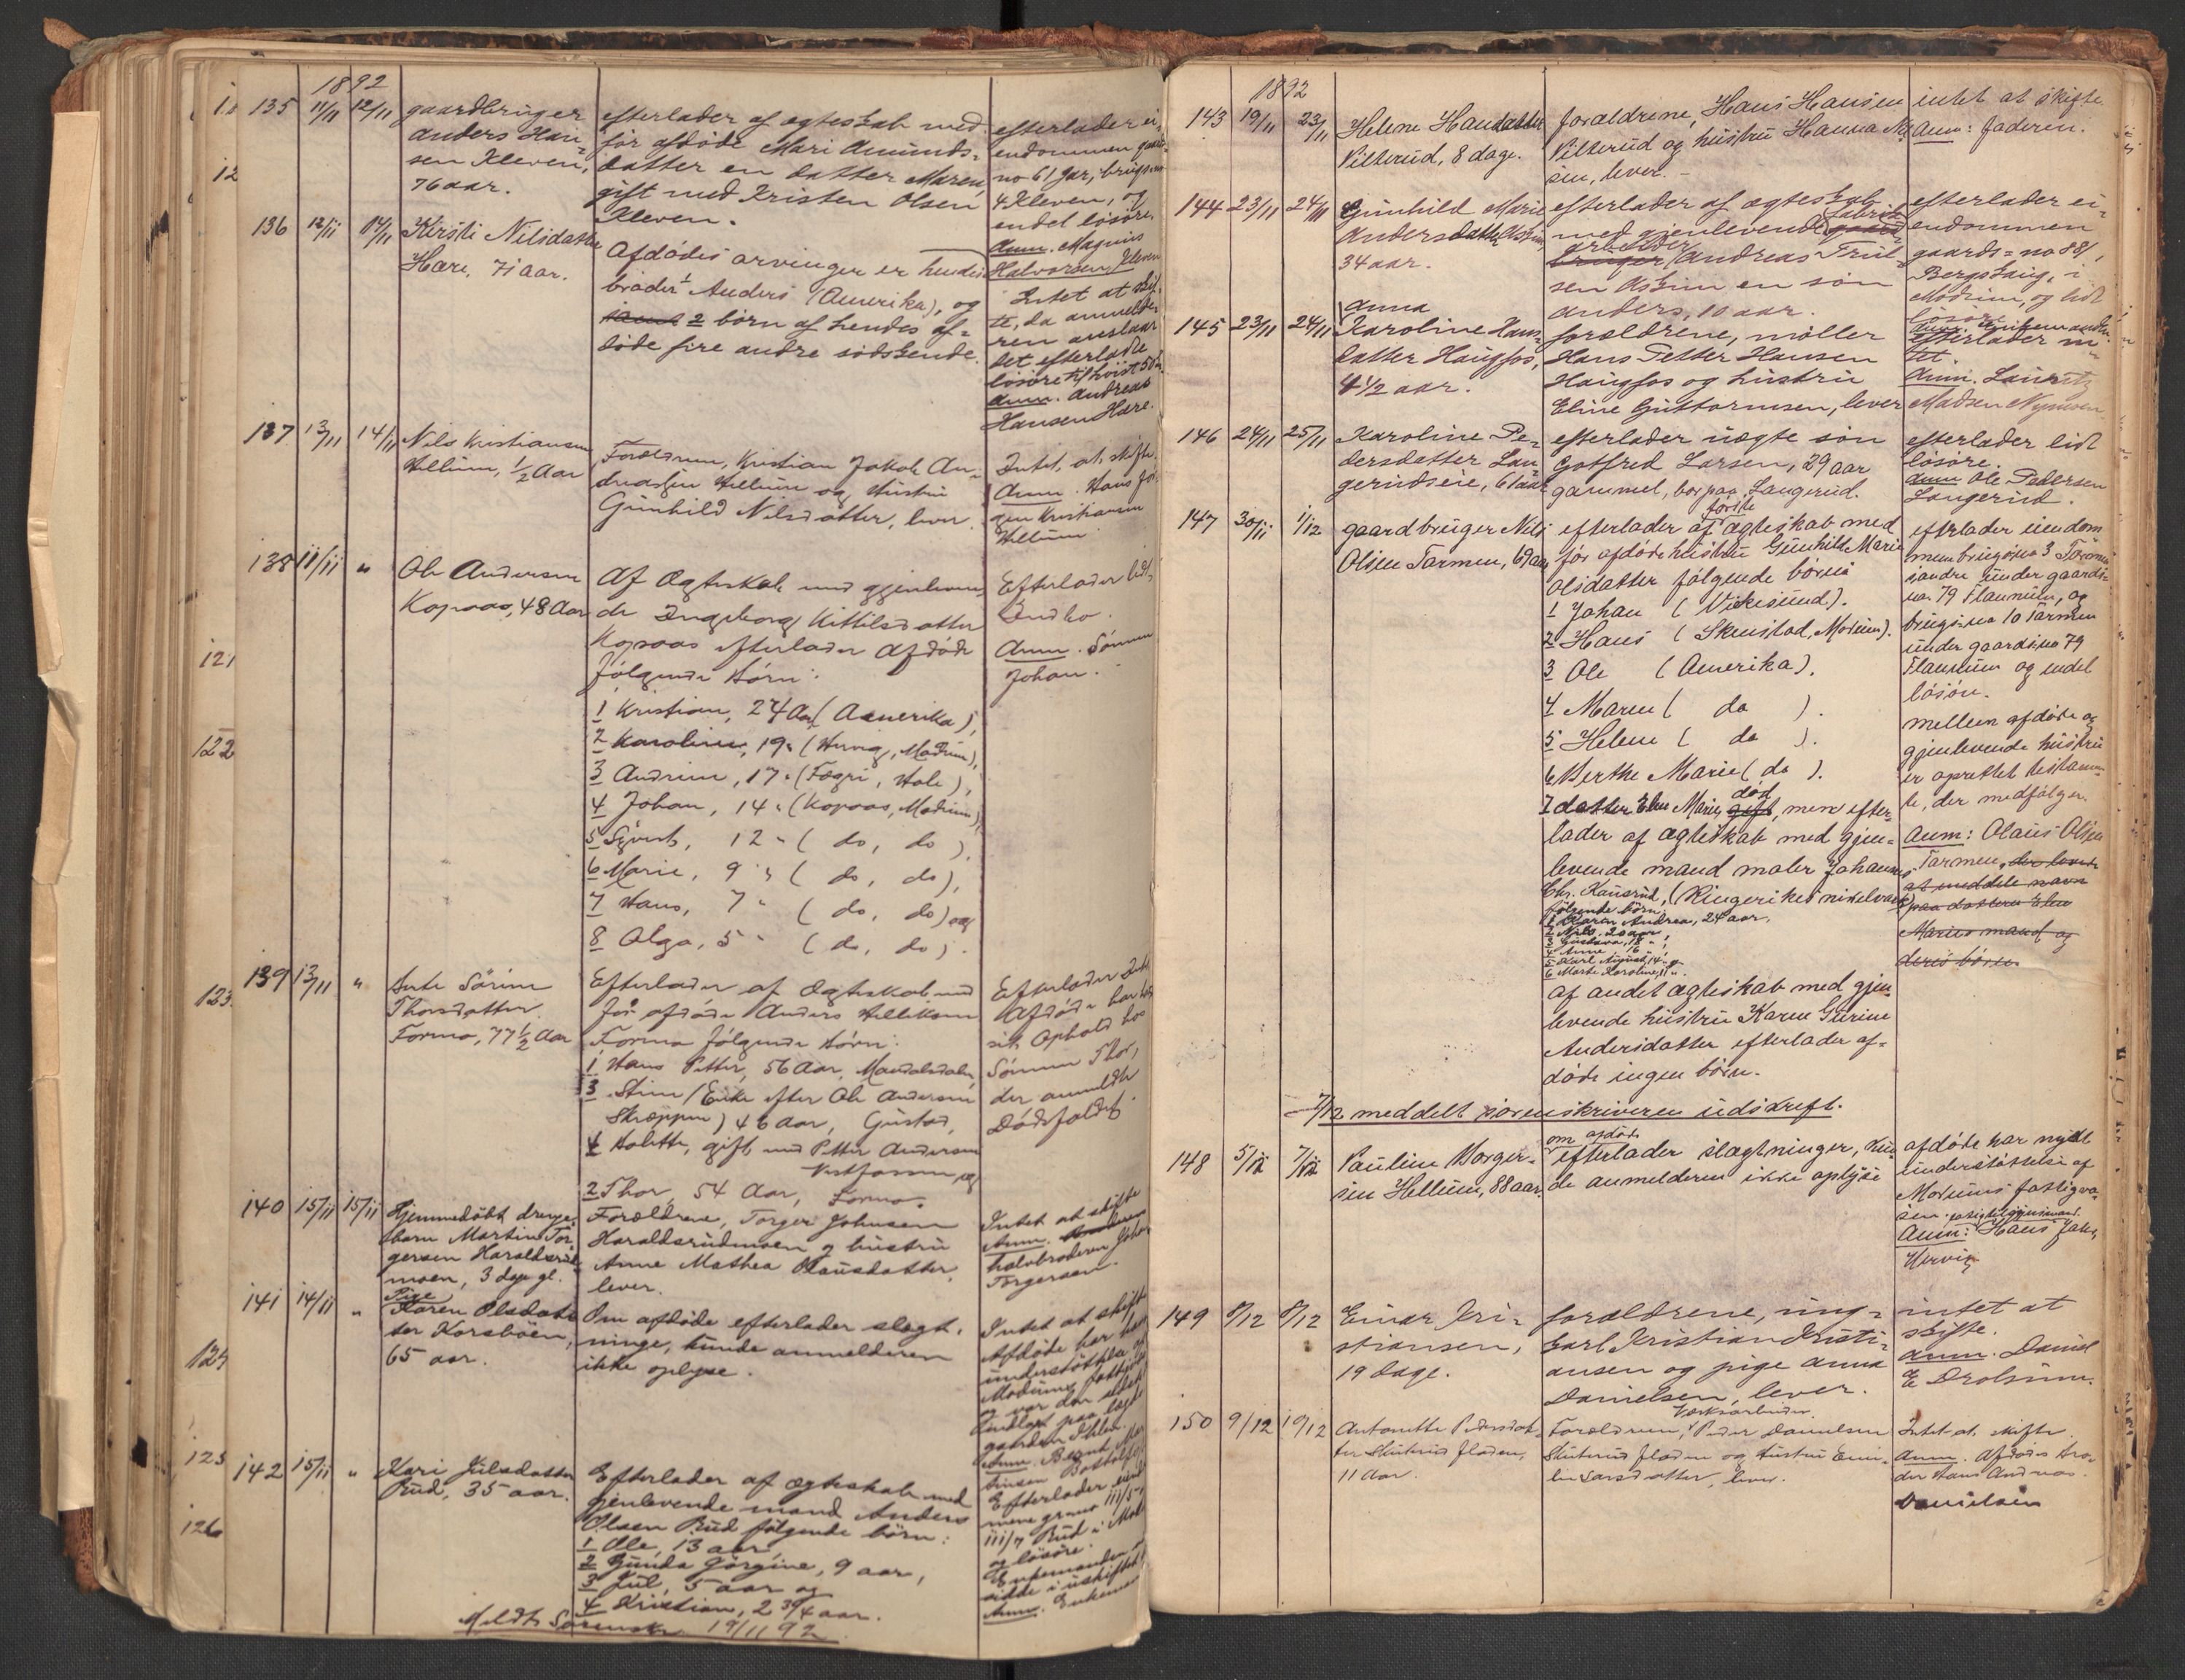 1892
135 11/11 12/11 gaardbruger
Anders Han-
sen Kleven,
76 aar.
efterlader af ægteskab med
før afdøde Mari Amunds-
datter en datter Maren,
gift med Kristen Olsen
Kleven.
efterlader ei-
endommen gaards-
no 61
4 Kleven, og
endel løsøre.
Anm. Magnus
Halvorsen Kleven
136 12/11 14/11 Kirsti Nilsdatter
Hære, 71 aar.
Afdødes arvinger er hendes
broder 1 Anders (Amerika), og
2 børn af hendes af-
døde fire andre sødskende.
Intet at skif-
te, da anmelde-
ren anslaar
det efterladte
løsøre til høist 50 kr.
Anm. Andreas
Hansen Hære.
137 13/11 14/11 Nils Kristiansen
Hellum, 1/2 Aar
Forældrene, Kristian Jakob An-
dreassen Hellum og Hustru
Gunhild Nilsdatter, lever.
Intet at skifte.
Anm. Hans Jør-
gen Kristiansen
Hellum
138 11/11 " Ole Andersen
Kopraas, 48 Aar
Af Ægteskab med gjenleven-
de Ingeborg Kittilsdatter
Kopraas efterlader Afdøde
følgende Børn:
1 Kristian, 24 Aar (Amerika),
2 Karoline, 19 " (Hervig, Modum),
3 Andrine, 17 " (Fægri, Hole),
4 Johan, 14 " (Kopraas, Modum),
5 Sigvert, 12 " (do, do),
6 Marie, 9 " (do, do),
7 Hans, 7 " (do, do) og
8 Olga, 5 " (do, do).
Efterlader lidt
Indbo.
Anm. Sønnen
Johan.
139 13/11 " Berte Sørine
Thorsdatter
Formo, 77 1/2 Aar
Efterlader af Ægteskab med
før afdøde Anders Helliksen
Formo følgende Børn:
1 Hans Petter, 56 Aar,
3 Stine (Enke efter Ole Andersen
Skreppen) 46 Aar, Gustad,
4 Bolette, gift med Petter Andersen
Vestfossen, og
2 Thor, 54 Aar, Formo.
Efterlader Intet
Afdøde har havt
sit Ophold hos
Sønnen Thor,
der anmeldte
Dødsfaldet.
140 15/11 15/11 Hjemmedøbt drenge-
barn Martin Tor-
gersen Haraldsrud-
moen, 3 dage gl.
Forældrene, Torger Johnsen
Haraldsrudmoen og hustru
Anne Mathea Olausdatter,
lever.
Intet at skifte
Anm.
halvbroderen Johan
Torgersen.
141 14/11 " Pige
Karen Olsdat-
ter Korsbøen,
65 aar.
Om afdøde efterlader slægt-
ninge, kunde anmelderen
ikke oplyse.
Intet at skifte
Afdøde har havt
understøttelse af
Modums fattigv.
og var den sidste
indlagt paa lægd
gaarden Ihlen.
Anm. Bernt
142 15/11 " Kari Julsdatter
Rud, 35 aar.
Efterlader af ægteskab med
gjenlevende mand Anders
Olsen Rud følgende børn:
1 Ole, 13 aar
2 Gunda Jørgine, 9 aar,
3 Jul, 5 aar og
4 Kristian, 2 3/4 aar.
Efterlader eiendom-
mene grano 111/5,
111/7 Rud i Modum
og løsøre.
Enkemanden
sidde i uskiftet
Anm. Enkeman
Meldt Sorenskr. 19/11 92.
1892
143 19/11 23/11 Helene Hansdatter
Vilterud, 8 dage.
forældrene, Hans Hansen
Vilterud og hustru Hanna Nil-
sen, lever. -
intet at skifte
Anm: Faderen.
144 23/11 24/11 Gunhild Marie
Andersdatter Askim,
34 aar.
efterlader af ægteskab
med gjenlevende fabrik
arbeider Andreas Trul-
sen Askim en søn
Anders, 10 aar.
efterlader ei-
endommen
gaards-no 88/1,
Berghaug, i
Modum, og lidt
løsøre
Anm. Enkemanden.
145 23/11 24/11 Anna
Karoline Hans-
datter Haugfos,
4 1/2 aar.
forældrene, møller
Hans Petter Hansen
Haugfos og hustru
Eline Guttormsen, lever
efterlader in-
tet.
Anm. Lauritz
Madsen Nymoen
146 24/11 25/11 Karoline Pe-
dersdatter Lan-
gerudseie, 61 aar
efterlader uægte søn
Gotfred Larsen, 29 aar
gammel, bor paa Langerud.
efterlader lidt
løsøre.
Anm Ole Pedersen
Langerud.
147 30/11 1/12 gaardbruger Nils
Olsen Tarmen, 69 aar
efterlader af første ægteskab med
før afdøde hustru Gunhild Marie
Olsdatter følgende børn:
1 Johan (Vikesund).
2 Hans (Skinstad, Modum).
3 Ole (Amerika).
4 Maren (do).
5 Helene (do).
6 Berthe Marie (do).
7 datter Elen Marie, gift død, men efter-
lader af ægteskab med gjen-
levende mand maler Johannes
Chr. Kausrud, (Ringerikes nikelværk)
følgende børn:
1 Karen Andrea, 24 aar,
2 Nils, 20 aar,
3 Gustava, 18 ",
4 Anne 16 ",
5 Karl August, 14 " og
6 Marte Karoline, 11 ".
af andet ægteskab med gjen
levende hustru Karen Gurine
Andersdatter efterlader af-
døde ingen børn.
efterlader eiendom
men brugsno 3 Tarmen
søndre under gaards-
no 79 Flannum, og
brugsno 10 Tarmen
under gaardsno 79
Flannum og endel
løsøre.
mellem afdøde og
gjenlevende hustru
er oprettet testamen-
te, der medfølger.
Anm: Olaus Olsen
Tarmen, der lovede
at meddele navn
paa datteren Elen
Maries mand og
deres børn
7/12 meddelt sorenskriveren udskrift.
148 5/12 7/12 Pauline Borger-
sen Hellum, 88 aar.
om afdøde
efterlader slægtninger, kun-
de anmelderen ikke oplyse
afdøde har nydt
understøttelse af
Modums fattigvæ-
sen.
Anm: Hans Jak.
Hervig
149 8/12 8/12 Einar Kri-
stiansen,
19 dage.
forældrene, ung-
karl Kristian Kristi-
ansen og pige Anna
Danielsen, lever.
intet at
skifte.
Anm. Daniel
E Drolsum.
150 9/12 10/12 Antonette Pedersdat-
ter Skuterudfladen,
11 Aar.
Værksarbeider
Forældrene, Peder Danielsen
Skuterudfladen og Hustru Emi-
lie Larsdatter, lever.
Intet at skifte.
Anm. Afdødes Bro-
der Hans Andreas
Danielsen